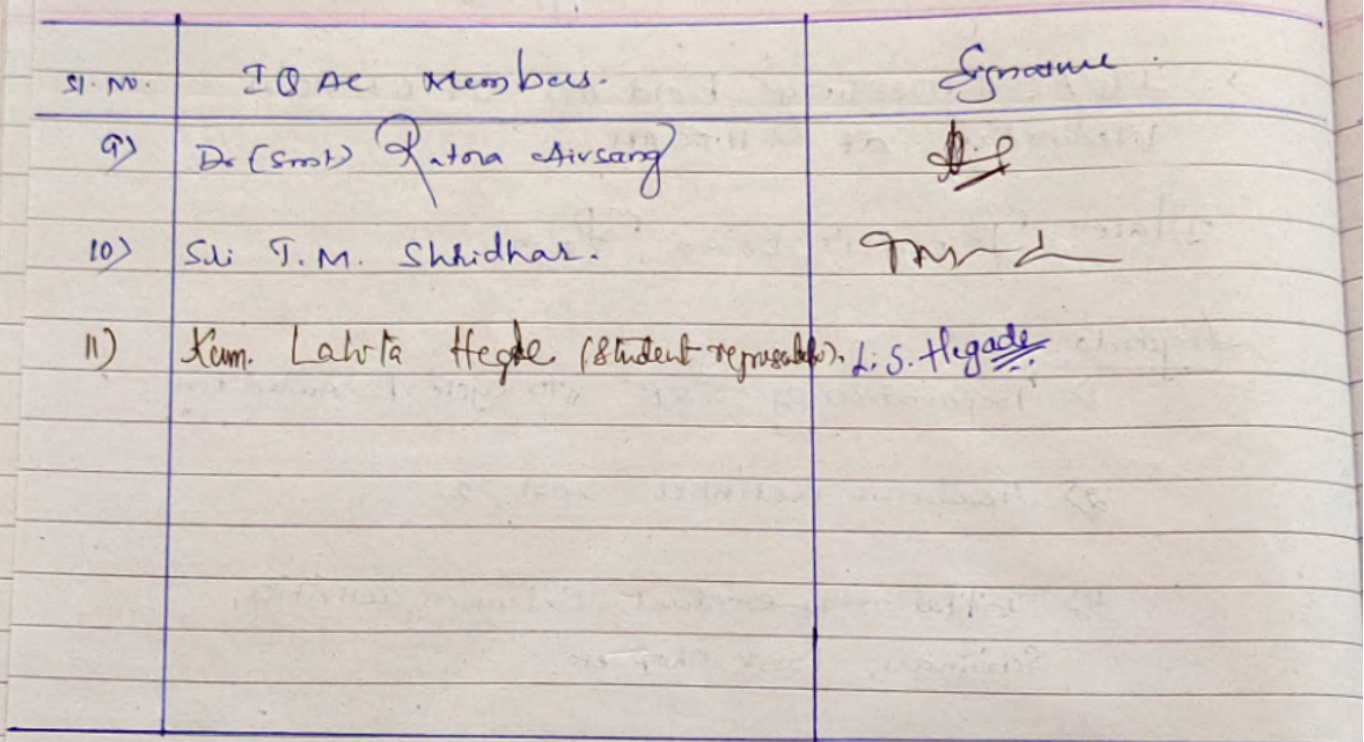 Sl. No. IQAC Members. Signature
9) Dr (Smt) Ratna Aivsang
10) Sri T.M. Shridhar.
11) Kum. Lalita Hegde (Student representative). L.S. Hegade